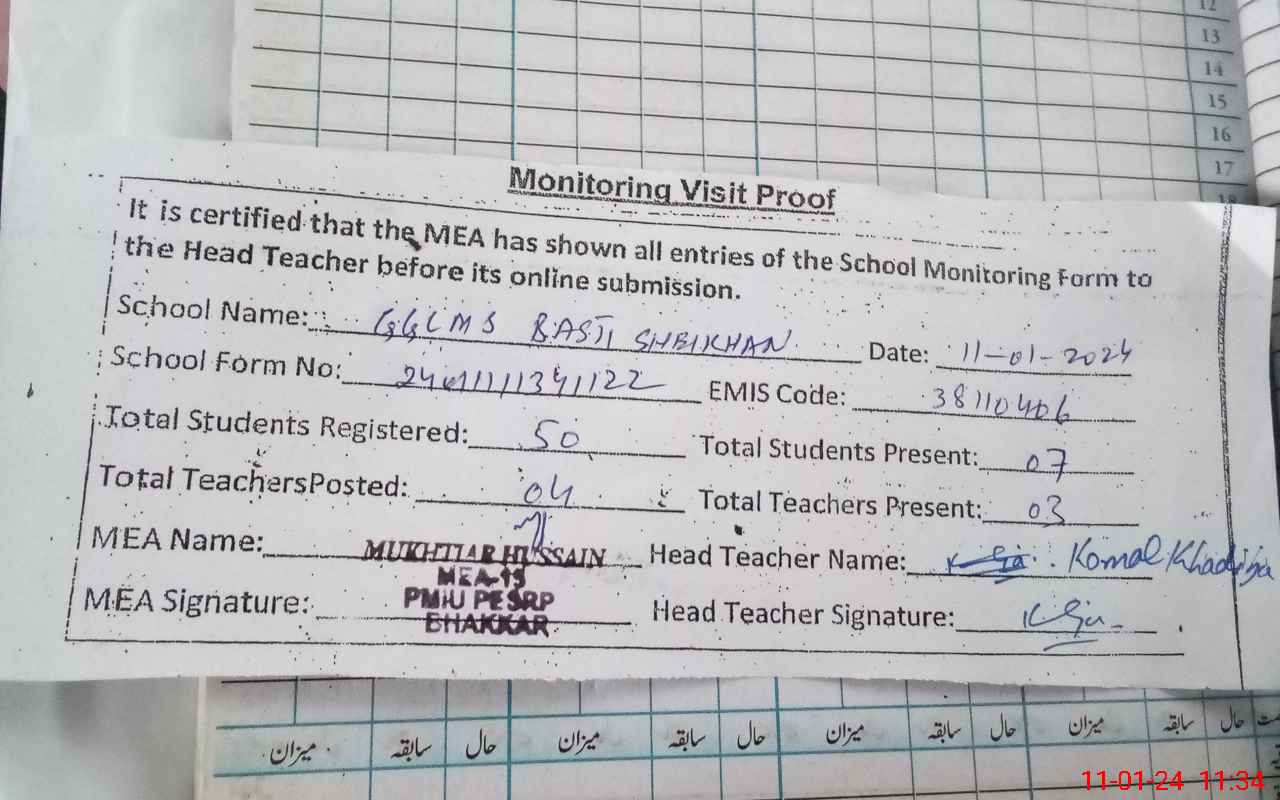 12
13
14
15
16
17
18
Monitoring Visit Proof
It is certified that the MEA has shown all entries of the School Monitoring Form to
the Head Teacher before its online submission.
School Name: GGCMS BASTI SHEIKHAN Date: 11-01-2024
School Form No: EMIS Code: 38110406
Total Students Registered: 50 Total Students Present: 07
Total TeachersPosted: 04 Total Teachers Present: 03
MEA Name: MUKHTIAR HUSSAIN Head Teacher Name: Komal Khadija
MEA-19
PMIU PESRP
MEA Signature: BHAKKAR Head Teacher Signature:
میزان سابقہ حال میزان سابقہ حال میزان سابقہ حال میزان سابقہ حال
11-01-24 11:34